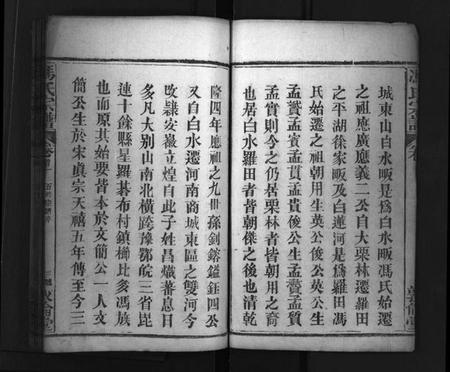 城東山白水畈是爲白水畈馮氏始遷
之祖應廣應義二公自大栗林遷羅田
之平湖徐家畈及白蓮河是爲羅田馮
氏始遷之祖朝用生英公俊公英公生
孟贇孟賔孟貫孟貴俊公生孟
孟實則今之仍居栗林者皆朝用之裔
也居白水羅田者皆朝傑之後也清乾
隆四年應祖之九世孫釗鎔鎰鈺四公
又自白水遷河南商城東區之雙河今
改隷安薇立煌自此子姓昌熾蕃息日
多凡大別山南北橫跨豫鄂皖三省毘
連十餘縣星羅碁布村鎮櫛比多馮族
也而原其始要皆本於文簡公一人文
簡公生於宋真宗天禧五年傳至今三
馮氏宗譜